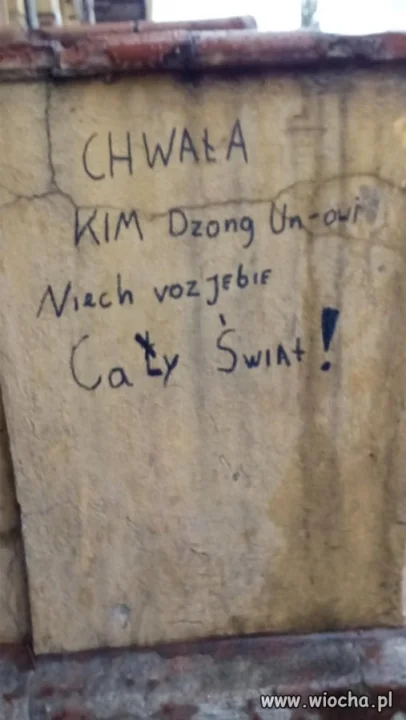 CHWAŁA
KIM Dzong Un-owi
Niech rozjebie
Cały Świat!
www.wiocha.pl